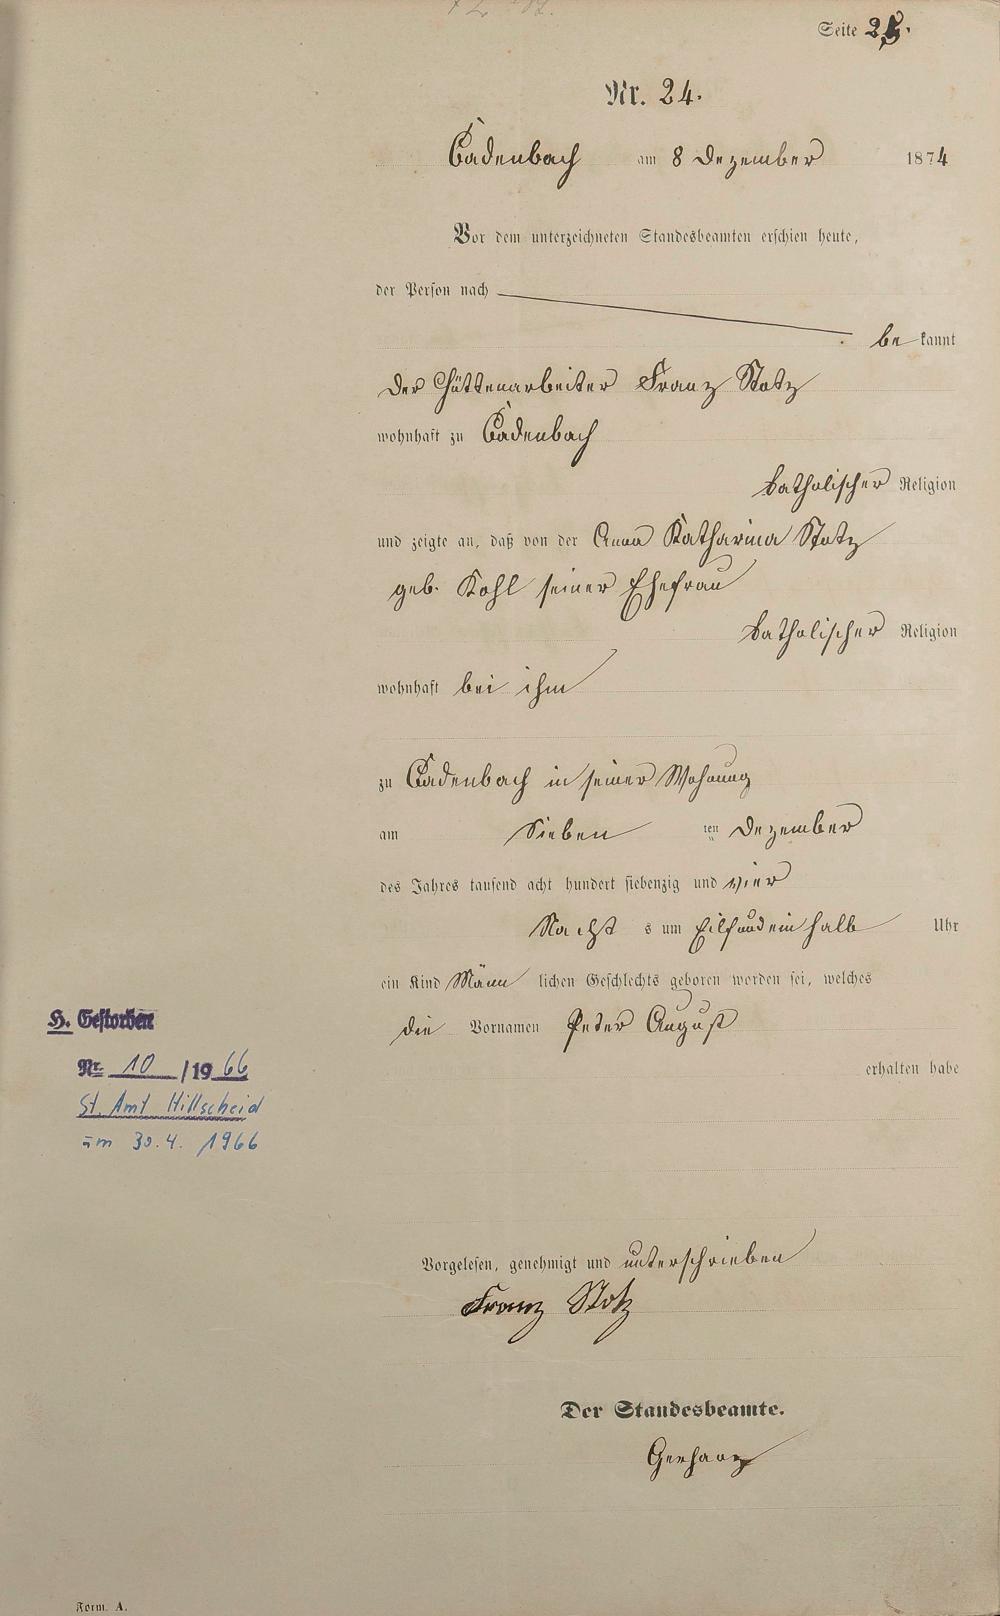 Seite 25.
Nr. 24.
Cadenbach am 8 Dezember 1874
Vor dem unterzeichneten Standesbeamten erschien heute,
der Person nach
bekannt
der Hüttenarbeiter Franz Stotz
wohnhaft zu Cadenbach
katholischer Religion
und zeigte an, daß von der Anna Katharina Stotz
geb. Kohl seiner Ehefrau
katholischer Religion
wohnhaft bei ihm
zu Cadenbach in seiner Wohnung
am Sieben ten Dezember
des Jahres tausend acht hundert siebenzig und vier
Nachts um Eilfundeinhalb Uhr
ein Kind Männlichen Geschlechts geboren worden sei, welches
die Vornamen Peter August
erhalten habe
H. Gestorben
Nr. 10 /1966
St. Amt Hillscheid
am 30.4. 1966
Vorgelesen, genehmigt und unterschrieben
Franz Stotz
Der Standesbeamte.
Gerharz
Form. A.